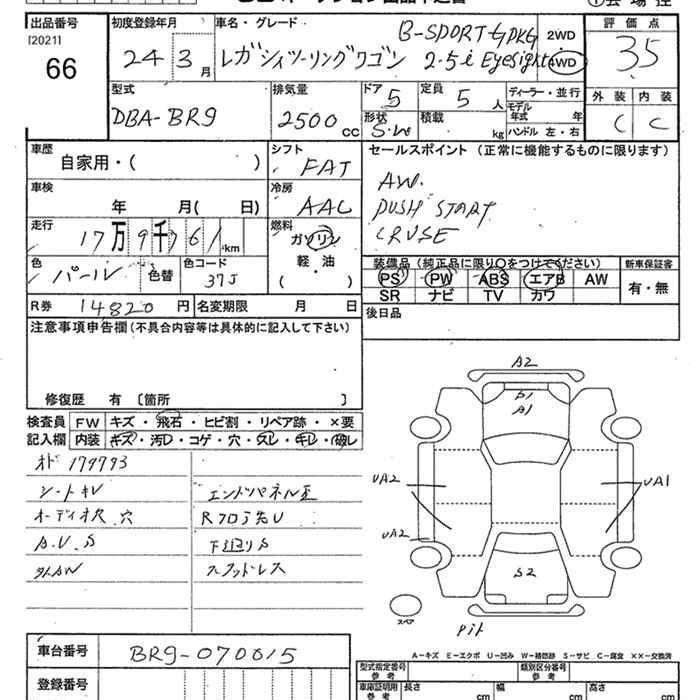 出品番号
[2021]
66
初度登録年月
24 3月
車名・グレード
B-SPORT G PKG
レガシィツーリングワゴン 2.5i Eyesight
2WD
4WD
評価点
3.5
型式
DBA-BR9
排気量
2500cc
ドア
5
定員
5人
形状
S.W
積載
kg
ディーラー・並行
モデル年式
年
ハンドル 左・右
外装 内装
C C
車歴
自家用・( )
シフト
FAT
車検
年 月( 日)
冷房
AAC
走行
17万9千761km
燃料
ガソリン
軽・油
( )
色
パール
色替
色コード
37J
R券 14820円
名変期限 月 日
セールスポイント (正常に機能するものに限ります)
AW.
PUSH START
CRUSE
装備品 (純正品に限り○をつけてください)
PS PW ABS エアB AW
SR ナビ TV カワ
新車保証書
有・無
後日品
注意事項申告欄(不具合内容等は具体的に記入して下さい)
修復歴 有 [箇所 ]
検査員記入欄
FW キズ・飛石・ヒビ割・リペア跡・×要
内装 キズ・汚レ・コゲ・穴・スレ・キレ・破レ
オド 179793
シートキレ
エンドパネル歪
オーディオ穴 穴
下廻りS
A2
A1
UA2
UA2
UA1
S2
スペア
Pit
A－キズ E－エクボ U－凹み W－補修跡 S－サビ C－腐食 ××－交換済
車台番号
BR9-070015
登録番号
型式指定番号
参考
類別区分番号
参考
車庫証明用
参考
長さ cm
幅 cm
高さ cm